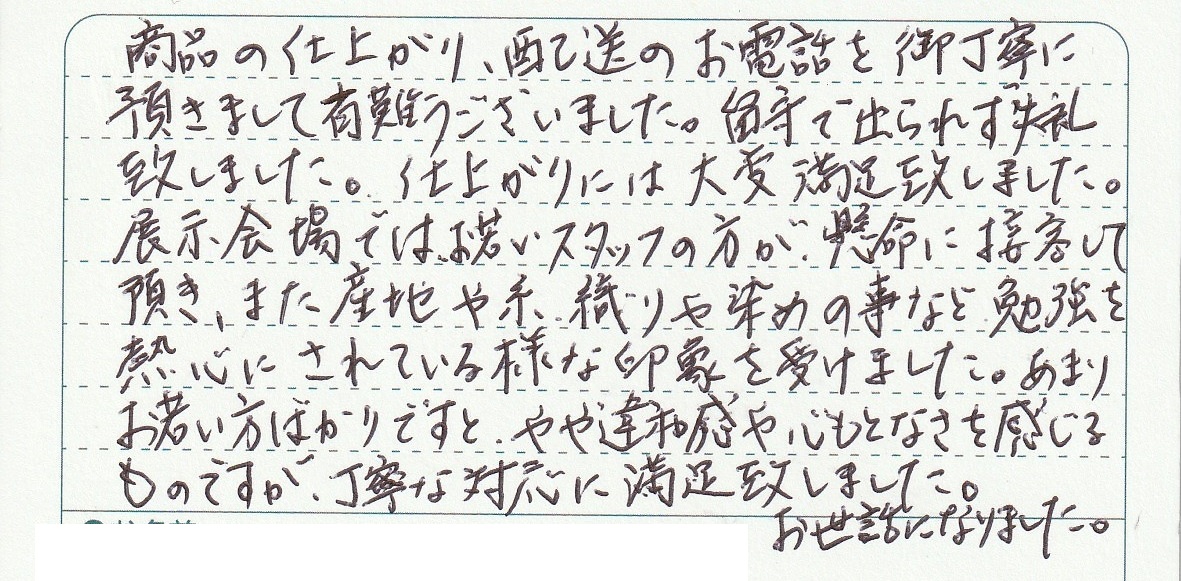 商品の仕上がり、配送のお電話を御丁寧に
預きまして有難うございました。留守で出られず失礼
致しました。仕上がりには大変満足致しました。
展示会場ではお若いスタッフの方が、懸命に接客して
預き、また産地や糸、織りや染めの事など勉強を
熱心にされている様な印象を受けました。あまり
お若い方ばかりですと、やや違和感や心もとなさを感じる
ものですが、丁寧な対応に満足致しました。
お世話になりました。